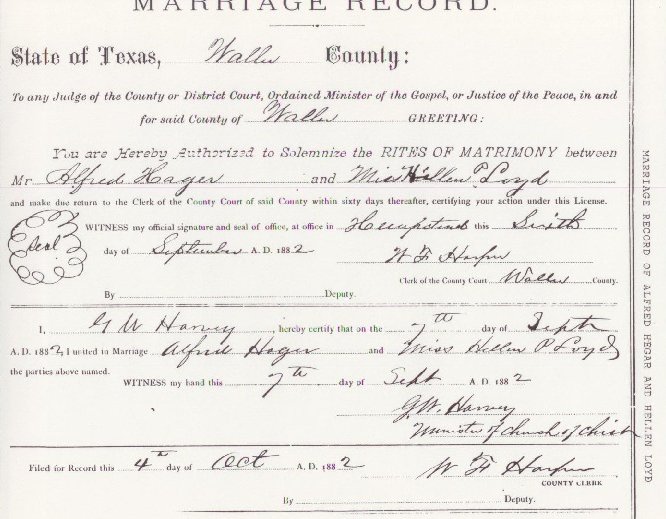 MARRIAGE RECORD.
State of Texas, Waller County:
To any Judge of the County or District Court, Ordained Minister of the Gospel, or Justice of the Peace, in and
for said County of Waller GREETING:
You are Hereby Authorized to Solemnize the RITES OF MATRIMONY between
Mr Alfred Hager and Miss Hellen P. Loyd
and make due return to the Clerk of the County Court of said County within sixty days thereafter, certifying your action under this License.
WITNESS my official signature and seal of office, at office in Hempstead this Sixth
Seal
day of September A. D. 1882 W F Harper
Clerk of the County Court Waller County.
By Deputy.
I, G W Harvey, hereby certify that on the 7th day of Septr
A. D. 1882 I united in Marriage Alfred Hager and Miss Hellen P Loyd
the parties above named.
WITNESS my hand this 7th day of Sept A. D. 1882
G.W. Harvey
Minister of Church of Christ
Filed for Record this 4th day of Oct A. D. 1882 W F Harper
COUNTY CLERK
By Deputy.
MARRIAGE RECORD OF ALFRED HEGAR AND HELLEN LOYD